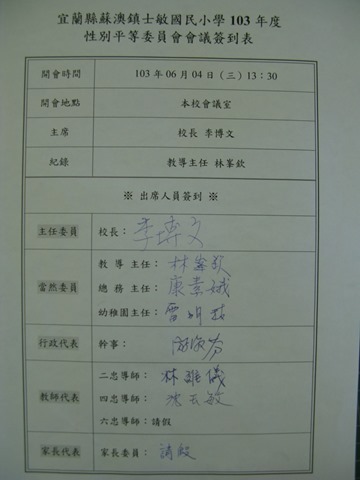 宜蘭縣蘇澳鎮士敏國民小學 103 年度
性別平等委員會會議簽到表
開會時間 103 年 06 月 04 日（三）13：30
開會地點 本校會議室
主席 校長 李博文
紀錄 教導主任 林峯欽
※ 出席人員簽到 ※
主任委員 校長： 李博文
當然委員
教 導 主任： 林峯欽
總 務 主任： 康素娥
幼稚園主任：
行政代表 幹事：
教師代表
二忠導師： 林雅儀
四忠導師： 沈長敏
六忠導師：請假
家長代表 家長委員： 請假